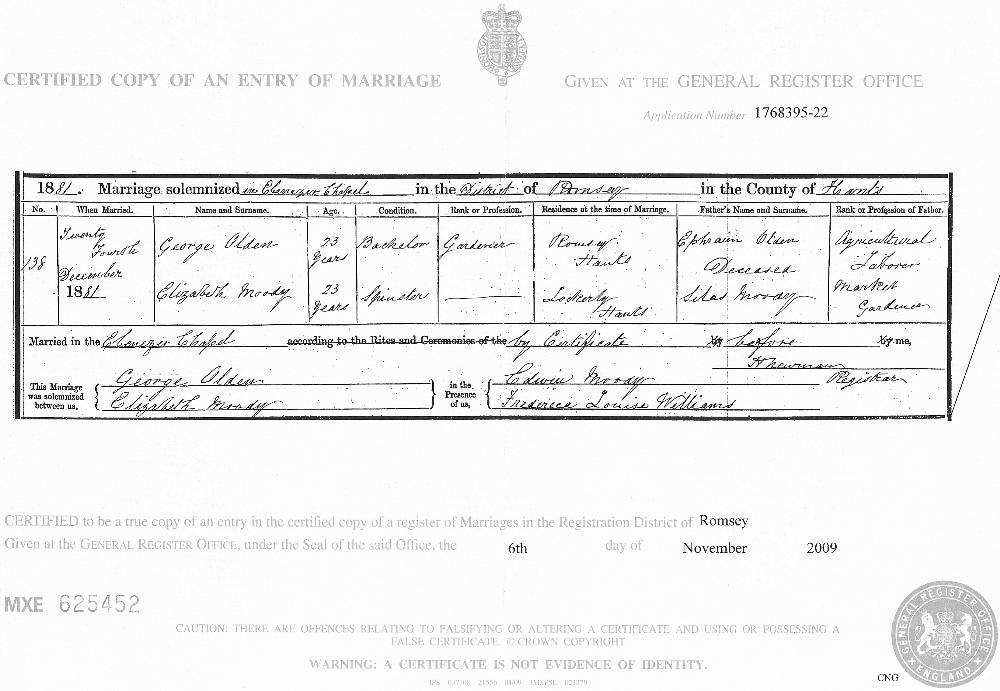 CERTIFIED COPY OF AN ENTRY OF MARRIAGE
GIVEN AT THE GENERAL REGISTER OFFICE
Application Number 1768395-22
1881. Marriage solemnized in Ebenezer Chapel in the District of Romsey in the County of Hants
No. When Married. Name and Surname. Age. Condition. Rank or Profession. Residence at the time of Marriage. Father's Name and Surname. Rank or Profession of Father.
138 Twenty Fourth December 1881
George Olden 23 years Bachelor Gardener Romsey Hants Ephraim Olden Deceased Agricultural Laborer
Elizabeth Moody 23 years Spinster Lockerly Hants Silas Moody Market Gardener
Married in the Ebenezer Chapel according to the Rites and Ceremonies of the by Certificate before me,
H Newman Registrar
This Marriage was solemnized between us, George Olden Elizabeth Moody
in the Presence of us, Edwin Moody Louise Williams
CERTIFIED to be a true copy of an entry in the certified copy of a register of Marriages in the Registration District of Romsey
Given at the GENERAL REGISTER OFFICE, under the Seal of the said Office, the 6th day of November 2009
MXE 625452
CAUTION: THERE ARE OFFENCES RELATING TO FALSIFYING OR ALTERING A CERTIFICATE AND USING OR POSSESSING A
FALSE CERTIFICATE. © CROWN COPYRIGHT
WARNING: A CERTIFICATE IS NOT EVIDENCE OF IDENTITY.
CNG
GENERAL REGISTER OFFICE ENGLAND